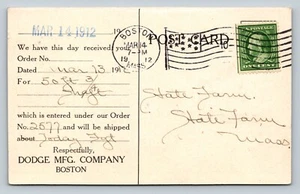 MAR 14 1912
We have this day received your
Order No.
Dated Mar 13 191
For 50 ft 3
Shaft
which is entered under our Order
No. 2677 and will be shipped
about Today Frgt
Respectfully,
DODGE MFG. COMPANY
BOSTON
BOSTON
MAR 14
7-PM
19 12
MASS.
POST CARD
State Farm
State Farm
Mass.